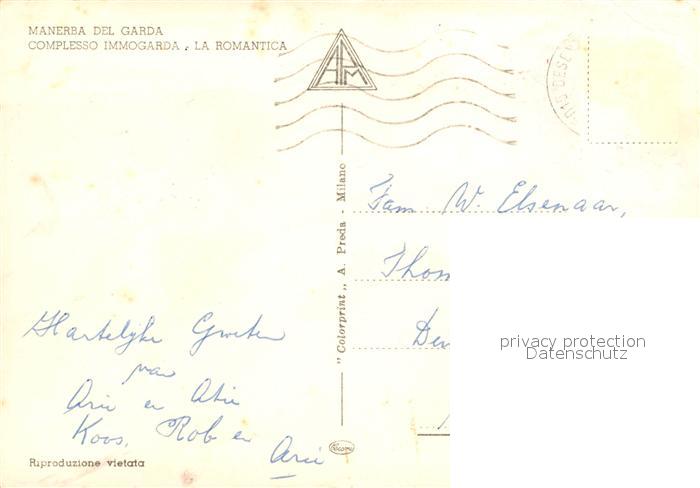 MANERBA DEL GARDA
COMPLESSO IMMOGARDA . LA ROMANTICA
APM
"Colorprint" A. Preda - Milano
Fam W. Elsenaar,
Thom
Den
privacy protection
Datenschutz
Hartelyke Groeten
van
Arie en Atie
Koos, Rob en
Arie
Riproduzione vietata